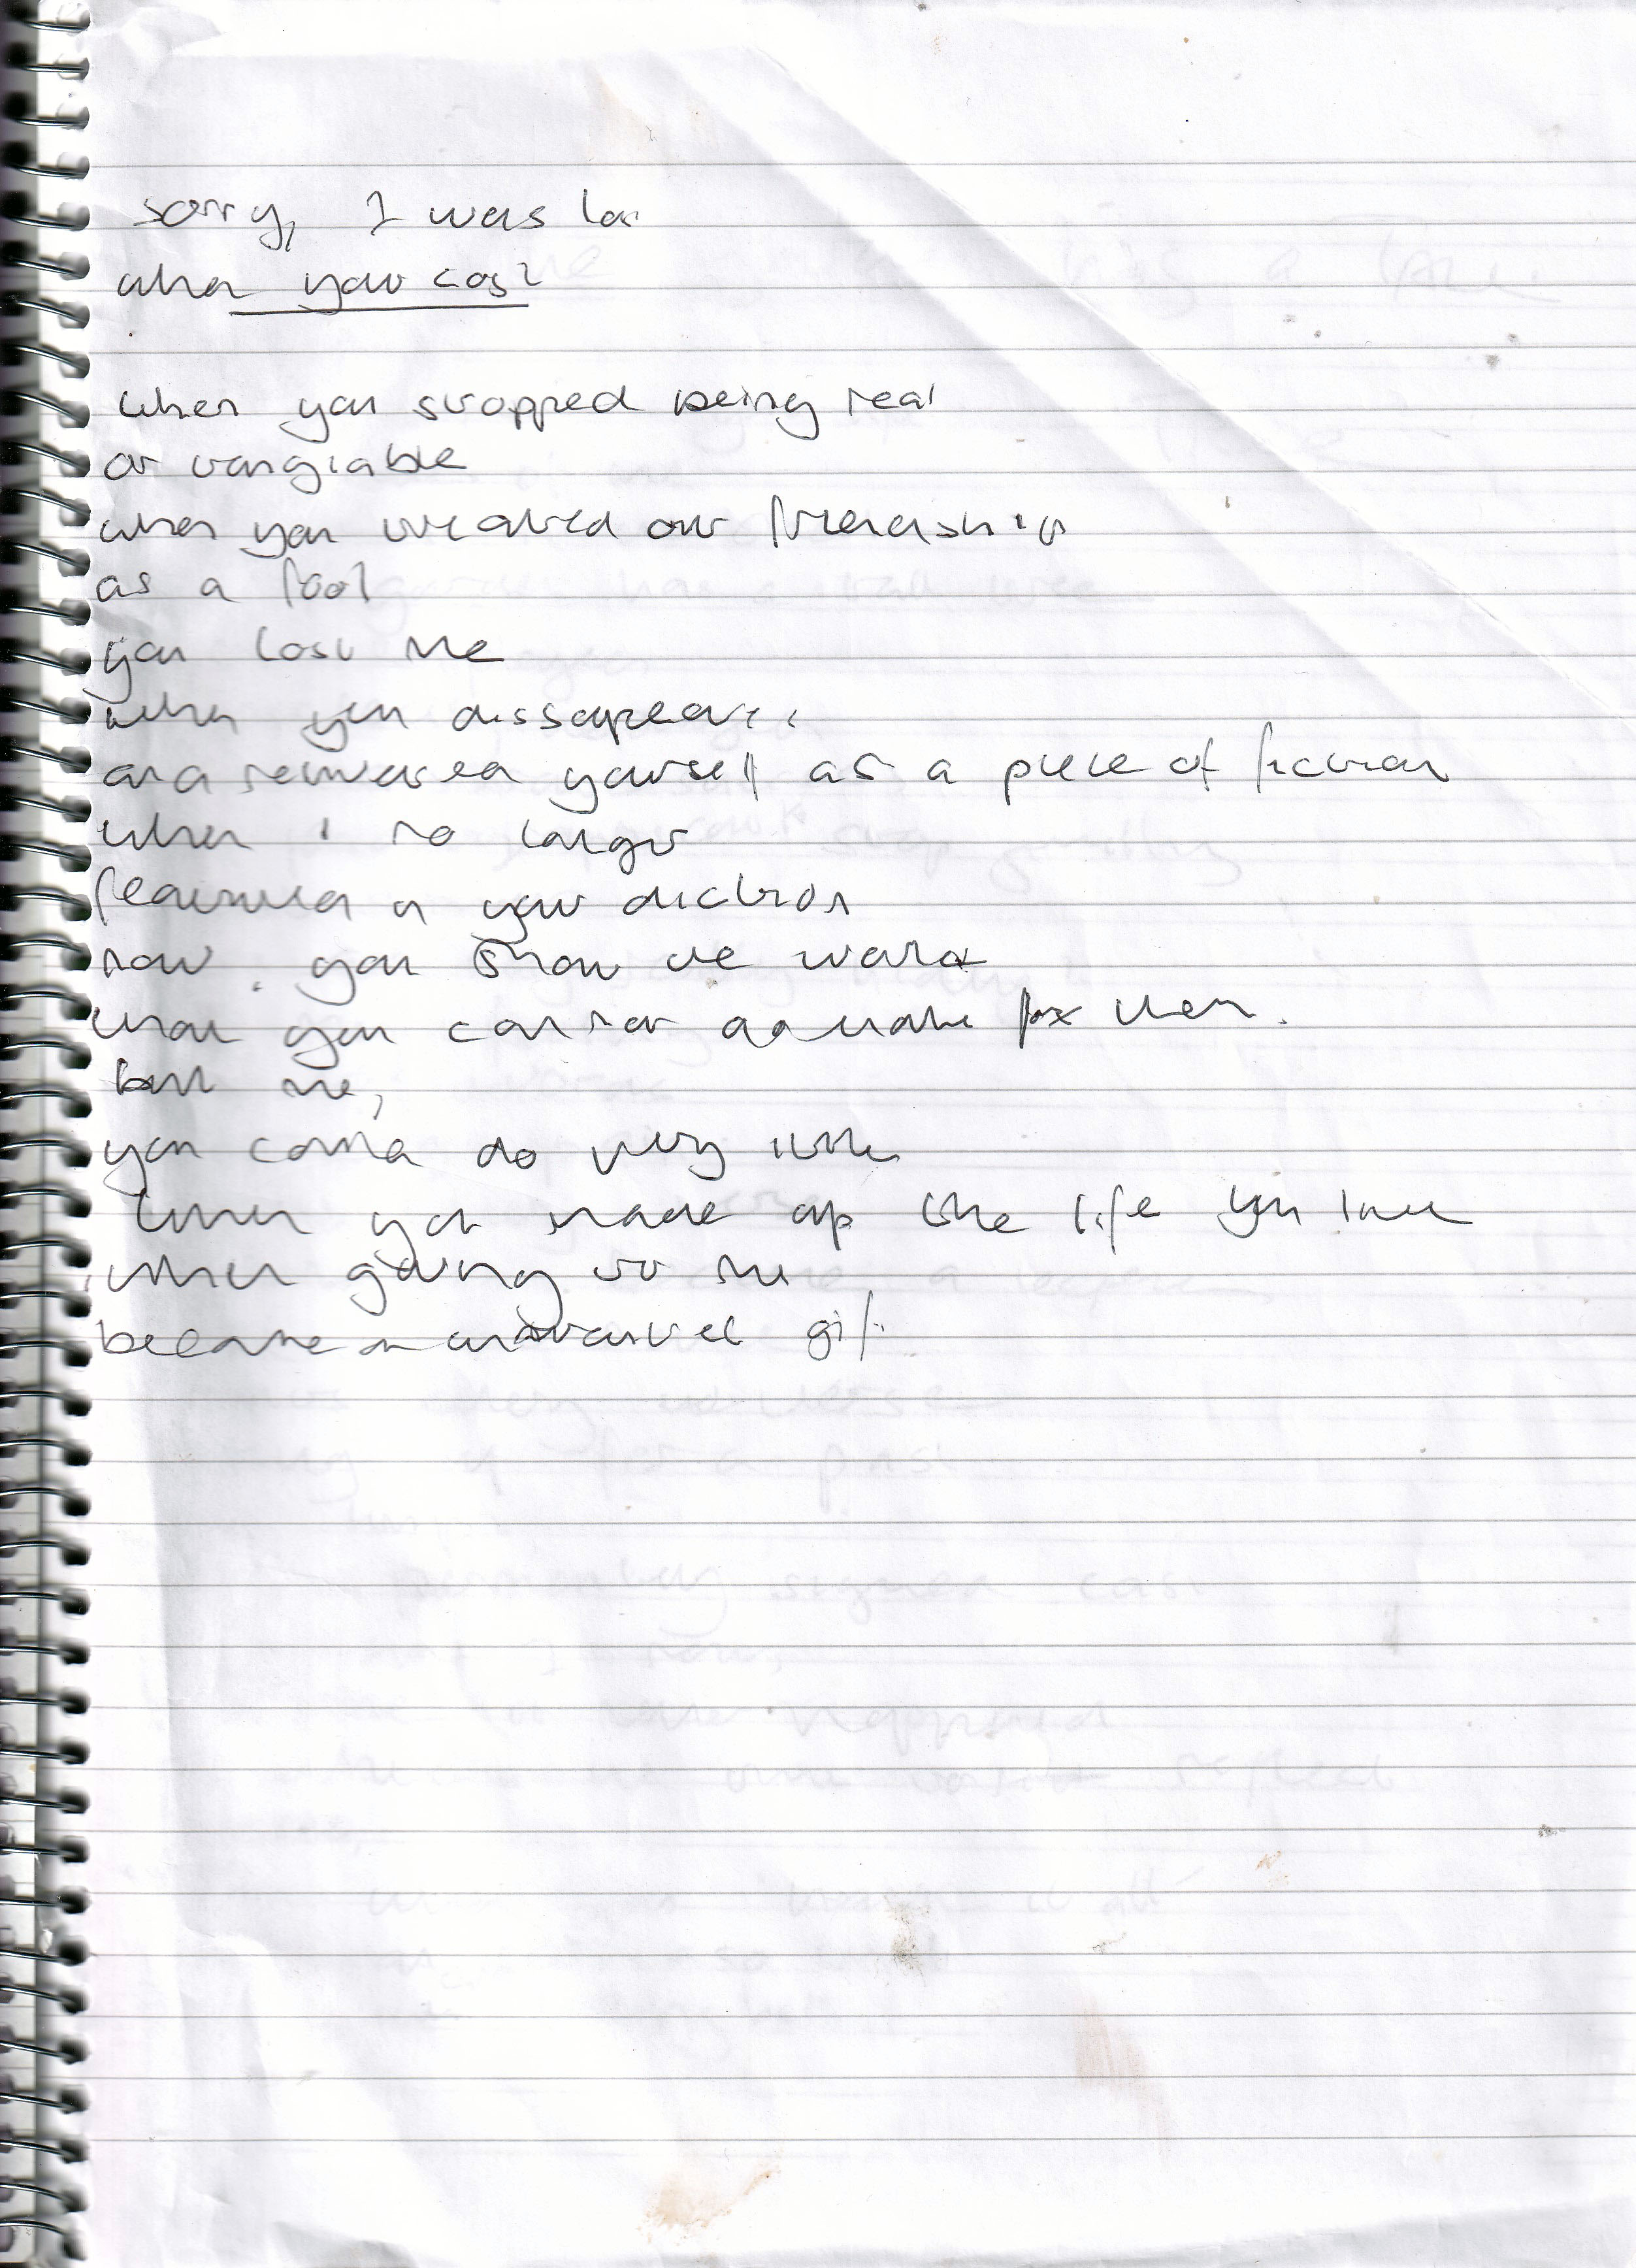 sorry, I was
when your
when you stopped being real
or tangiable
when you treated our friendship
as a tool
you lost me
when you dissapear
and reinvented yourself as a piece of fiction
when I no longer
featured in your diction
now you show the world
that you cannot for them.
but me,
you could do very little
when you made up the life you
when giving to me
became an unwanted gift